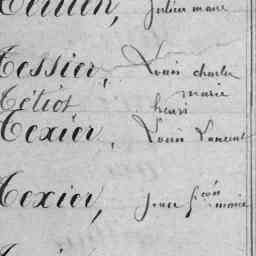 julien marie
Tessier, Louis charles
marie
Tétiot henri
Texier, Louis Laurent
Texier, jean fçois marie